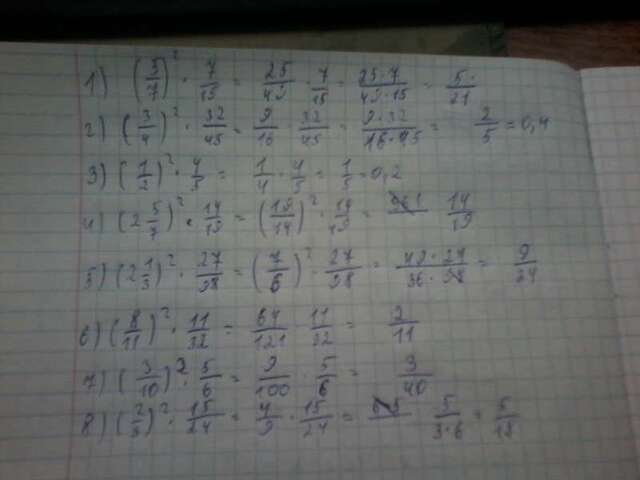 1) (5/7)² · 7/15 = 25/49 · 7/15 = 25·7/49·15 = 5/21
2) (3/4)² · 32/45 = 9/16 · 32/45 = 9·32/16·45 = 2/5 = 0,4
3) (1/2)² · 4/5 = 1/4 · 4/5 = 1/5 = 0,2
4) (2 5/7)² · 14/19 = (19/14)² · 14/19 = 19/14
5) (2 1/3)² · 27/98 = (7/6)² · 27/98 = 49·27/36·98 = 9/24
6) (8/11)² · 11/32 = 64/121 · 11/32 = 2/11
7) (3/10)² · 5/6 = 9/100 · 5/6 = 3/40
8) (2/3)² · 15/24 = 4/9 · 15/24 = 5/3·6 = 5/18